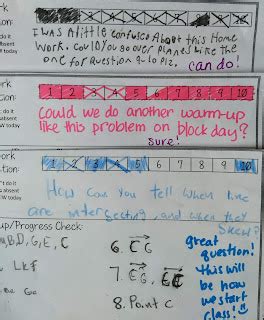 rk
tion:
't do it
absent
W today
10
I was A little confused About this Home
Work. Could you go over planes like the
one for question 9-10 Plz.
can do!
rk
tion:
1 2 3 4 5 6 7 8 9 10
't do it
absent
W today
Could we do another warm-up
like this problem on block day?
sure!
ork
tion:
1 2 3 4 5 6 7 8 9 10
't do it
absent
W today
How can you tell when line
are intersecting, and when they
skew?
up/Progress Check:
ABD, G, E, C
6. EG
great
question!
this will
be how
we start
class!
LKF
7. EG, EC
8. Point C